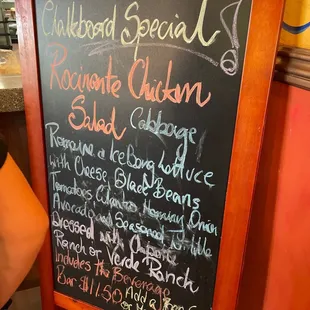 Chalkboard Special!
Rocinante Chicken
Salad Cabbage
Romaine & IceBerg Lettuce
with Cheese, Black Beans
Tomatoes Cilantro Onion
Avocado and Seasoned Tortilla
Dressed with Chipotle
Ranch or Verde Ranch
Includes the Beverage
Bar $11.50 Add a